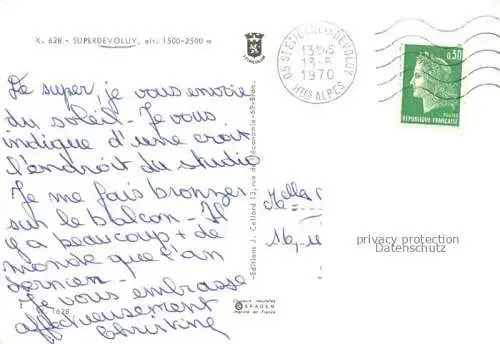 X. 628 - SUPERDEVOLUY, alt. 1500-2500 m
De super, je vous envoie
du soleil - Je vous
indique d'une croix
l'endroit du studio
Je me fais bronzer
sur le balcon - Il
y a beaucoup + de
monde que l'an
dernier -
Je vous embrasse
affectueusement
Christine
1628
Editions J. Cellard
Couleurs naturelles
SPADEM
Made in France
05 ST ETIENNE EN DEVOLUY
13H45
13-8
1970
HTES ALPES
0,30
POSTES
REPUBLIQUE FRANÇAISE
Melle
16,
privacy protection
Datenschutz